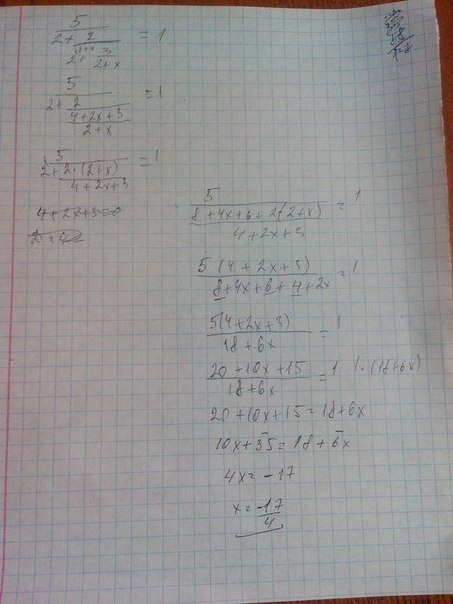 5/(2 + 2/(2 + 3/(2+x))) = 1
5/(2 + 2/((4+2x+3)/(2+x))) = 1
5/(2 + 2·(2+x)/(4+2x+3)) = 1
4+2x+3=0
5/((8+4x+6+2(2+x))/(4+2x+3)) = 1
5(4+2x+3)/(8+4x+6+4+2x) = 1
5(4+2x+3)/(18+6x) = 1
(20+10x+15)/(18+6x) = 1 |·(18+6x)
20+10x+15=18+6x
10x+35=18+6x
4x=-17
x=-17/4